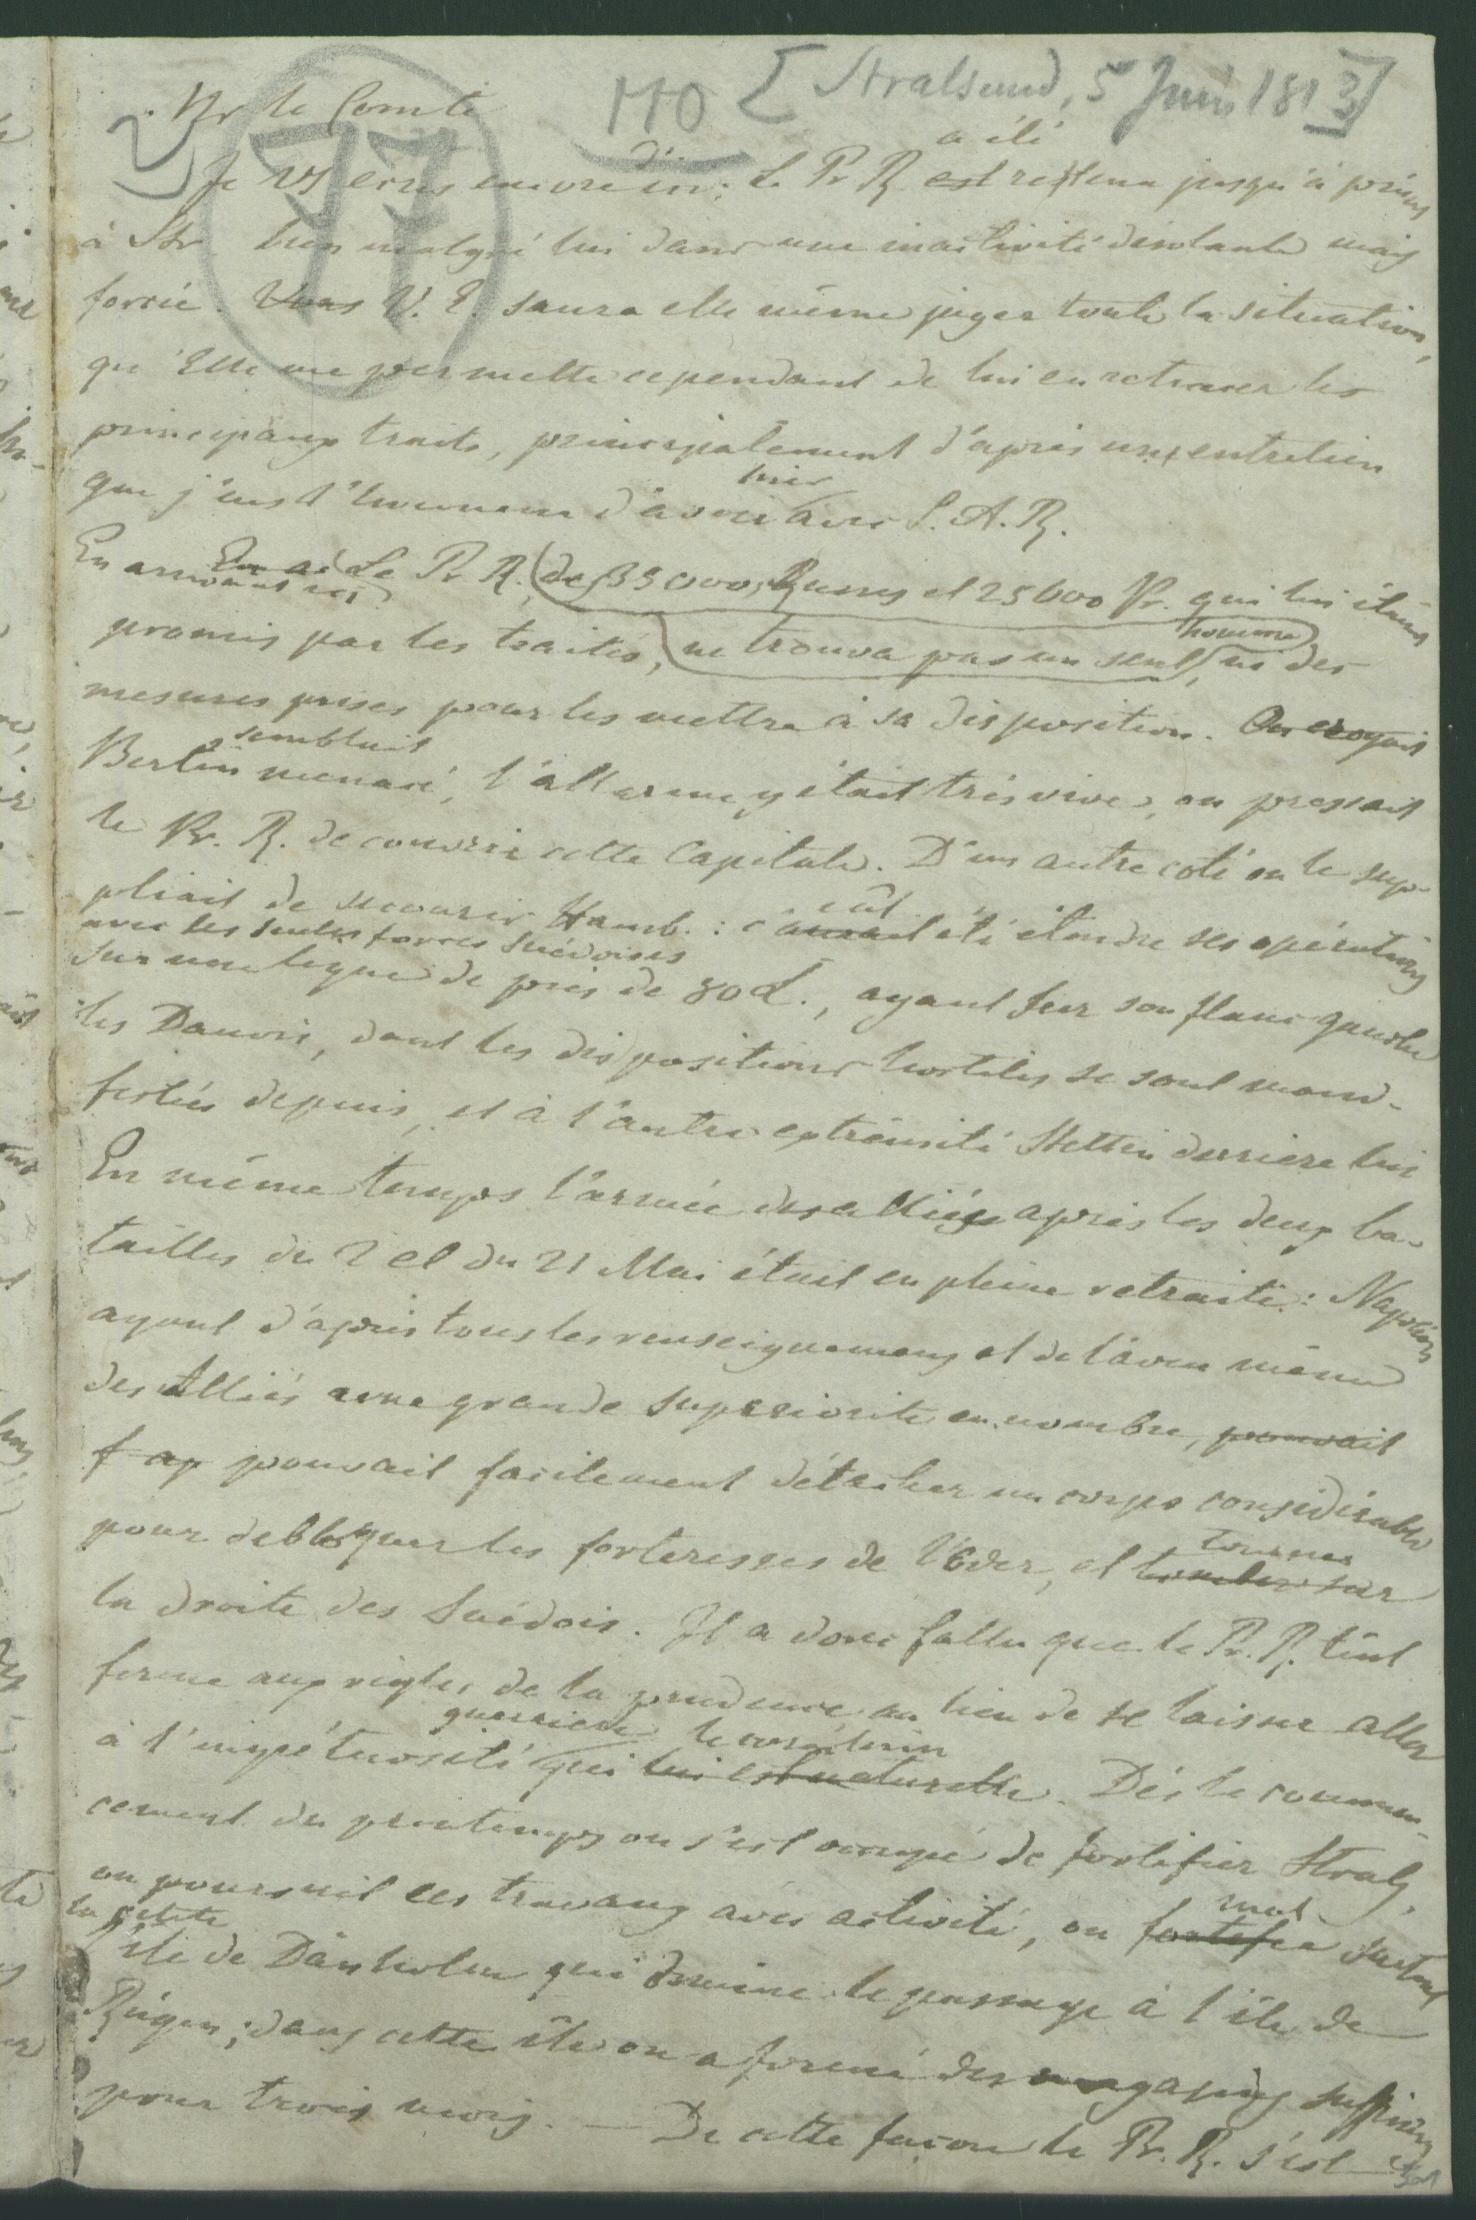 110 [Stralsund, 5 Juni 1813]
77
Mr le Comte
Je vs ecris encore d'ici; Le Pr R est a été retenu jusqu'à présent
à Str bien malgré lui dans une inactivité désolante mais
forcée. Vous V. E. saura elle même juger toute la situation,
qu'Elle me permette cependant de lui en retracer les
principaux traits, principalement d'après un entretien
que j'eus l'honneur d'avoir hier avec S. A. R.
En arrivant ici Le Pr R. de 35000 Russes et 25000 Pr. qui lui étaient
promis par les traités, ne trouva pas un seul homme, ni des
mesures prises pour les mettre à sa disposition. On croyait
Berlin semblait menacé, l'allarme y était très vive, on pressait
le Pr. R. de couvrir cette Capitale. D'un autre coté on le sup-
pliait de secourir Hamb.: c'aurait eût été étendre ses opérations
avec les seules forces suédoises
sur une ligne de près de 80 L., ayant sur son flanc gauche
les Danois, dont les dispositions hostiles se sont mani-
festées depuis, et à l'autre extrémité Stettin derriere lui
En même temps l'armée des alliés après les deux ba-
tailles du 2 et du 21 Mai était en pleine retraite: Napoléon
ayant d'après tous les renseignemens et de l'aveu même
des Alliés une grande superiorité en nombre, pouvait
f ap pouvait facilement détacher un corps considérable
pour débloquer les forteresses de l'Oder, et tomber sur tourner
la droite des Suédois. Il a donc fallu que le Pr. R. tînt
ferme aux règles de la prudence au lieu de se laisser aller
à l'impétuosité guerriere qui lui est naturelle le caractérise. Dès le commen-
cement du printemps on s'est occupé de fortifier Strals,
on poursuit ces travaux avec activité, on fortifie met surtout
la petite
île de Dänholm qui domine le passage à l'île de
Rügen; dans cette île on a formé des magasins suffisans
pour trois mois. — De cette façon le Pr. R. s'est